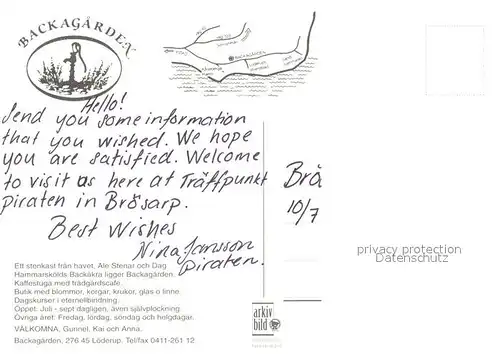 BACKAGÅRDEN
BACKAGÅRDEN
Hello!
Send you some information
that you wished. We hope
you are satisfied. Welcome
to visit us here at Träffpunkt
piraten in Brösarp.
Best Wishes
Nina Jansson
Piraten.
Brö
10/7
privacy protection
Datenschutz
Ett stenkast från havet, Ale Stenar och Dag
Hammarskölds Backåkra ligger Backagården.
Kaffestuga med trädgårdscafé.
Butik med blommor, korgar, krukor, glas o linne.
Dagskurser i eternellbindning.
Öppet: Juli - sept dagligen, även självplockning
Övriga året: Fredag, lördag, söndag och helgdagar.
VÄLKOMNA, Gunnel, Kai och Anna.
Backagården, 276 45 Löderup. Tel/fax 0411-261 12
arkiv
bild